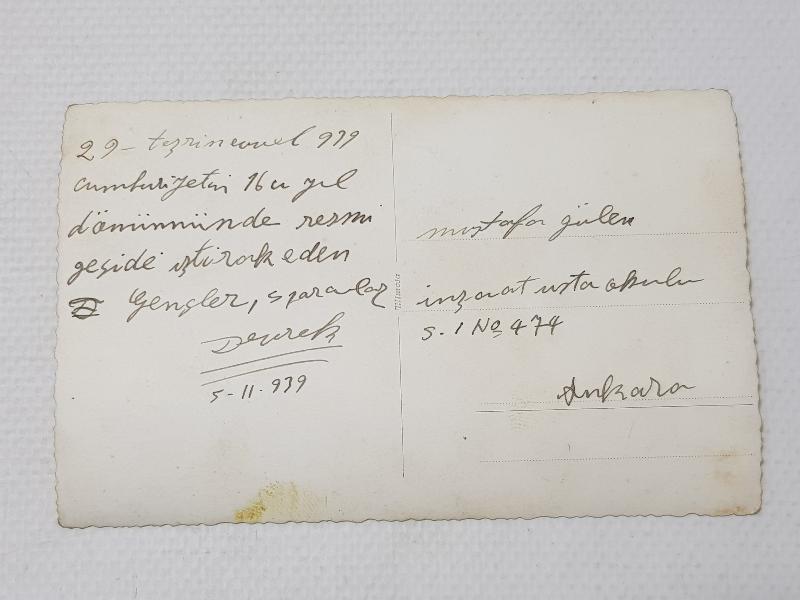 29 - teşrinevvel 939
cumhuriyetin 16cı yıl
dönümünde resmi
geçide iştirak eden
Gençler, sporcular
Devrek
5-11-939
mustafa gülen
inşaat usta okulu
S. 1 No 474
Ankara